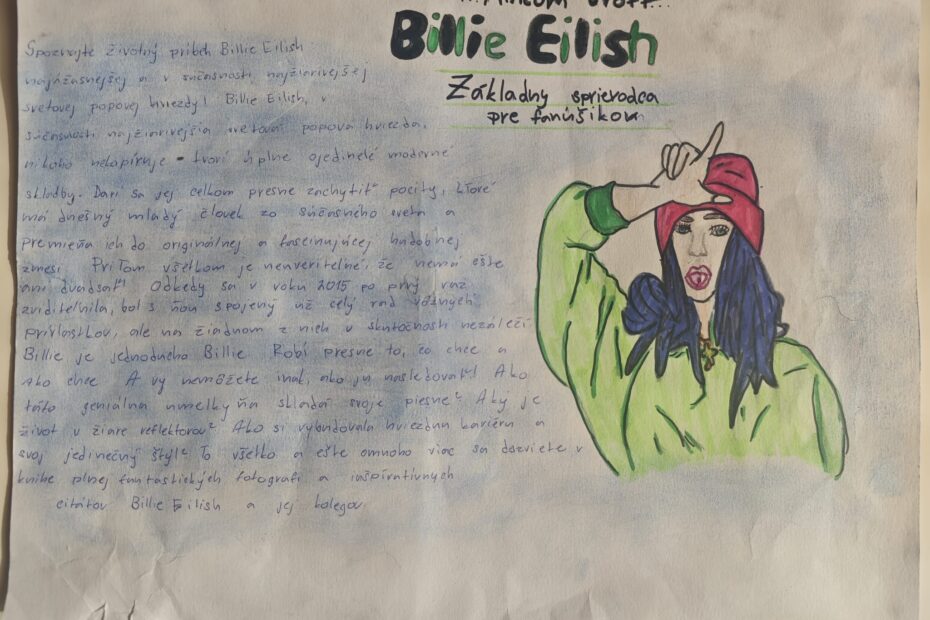 Billie Eilish
Základny sprievodca
pre fanúšikov
Spoznajte životný príbeh Billie Eilish
najúžasnejšej a v súčasnosti najžiarivejšej
svetovej popovej hviezdy! Billie Eilish, v
súčasnosti najžiarivejšia svetová popová hviezda,
nikoho nekopíruje - tvorí úplne ojedinelé moderné
skladby. Darí sa jej celkom presne zachytiť pocity, ktoré
má dnešný mladý človek zo súčasného sveta a
premieňa ich do originálnej a fascinujúcej hudobnej
zmesi. Pritom všetkom je neuveriteľné, že nemá ešte
ani dvadsať! Odkedy sa v roku 2015 po prvý raz
zviditeľnila, bol s ňou spojený už celý rad vážnych
prívlastkov, ale na žiadnom z nich v skutočnosti nezáleží
Billie je jednoducho Billie Robí presne to, čo chce a
ako chce A vy nemôžete inak, ako ju nasledovať! Ako
táto geniálna umelkyňa skladá svoje piesne? Aký je
život v žiare reflektorov? Ako si vybudovala hviezdnu kariéru a
svoj jedinečný štýl? To všetko a ešte omnoho viac sa dozviete v
knihe plnej fantastických fotografií a inšpiratívnych
citátov Billie Eilish a jej kolegov